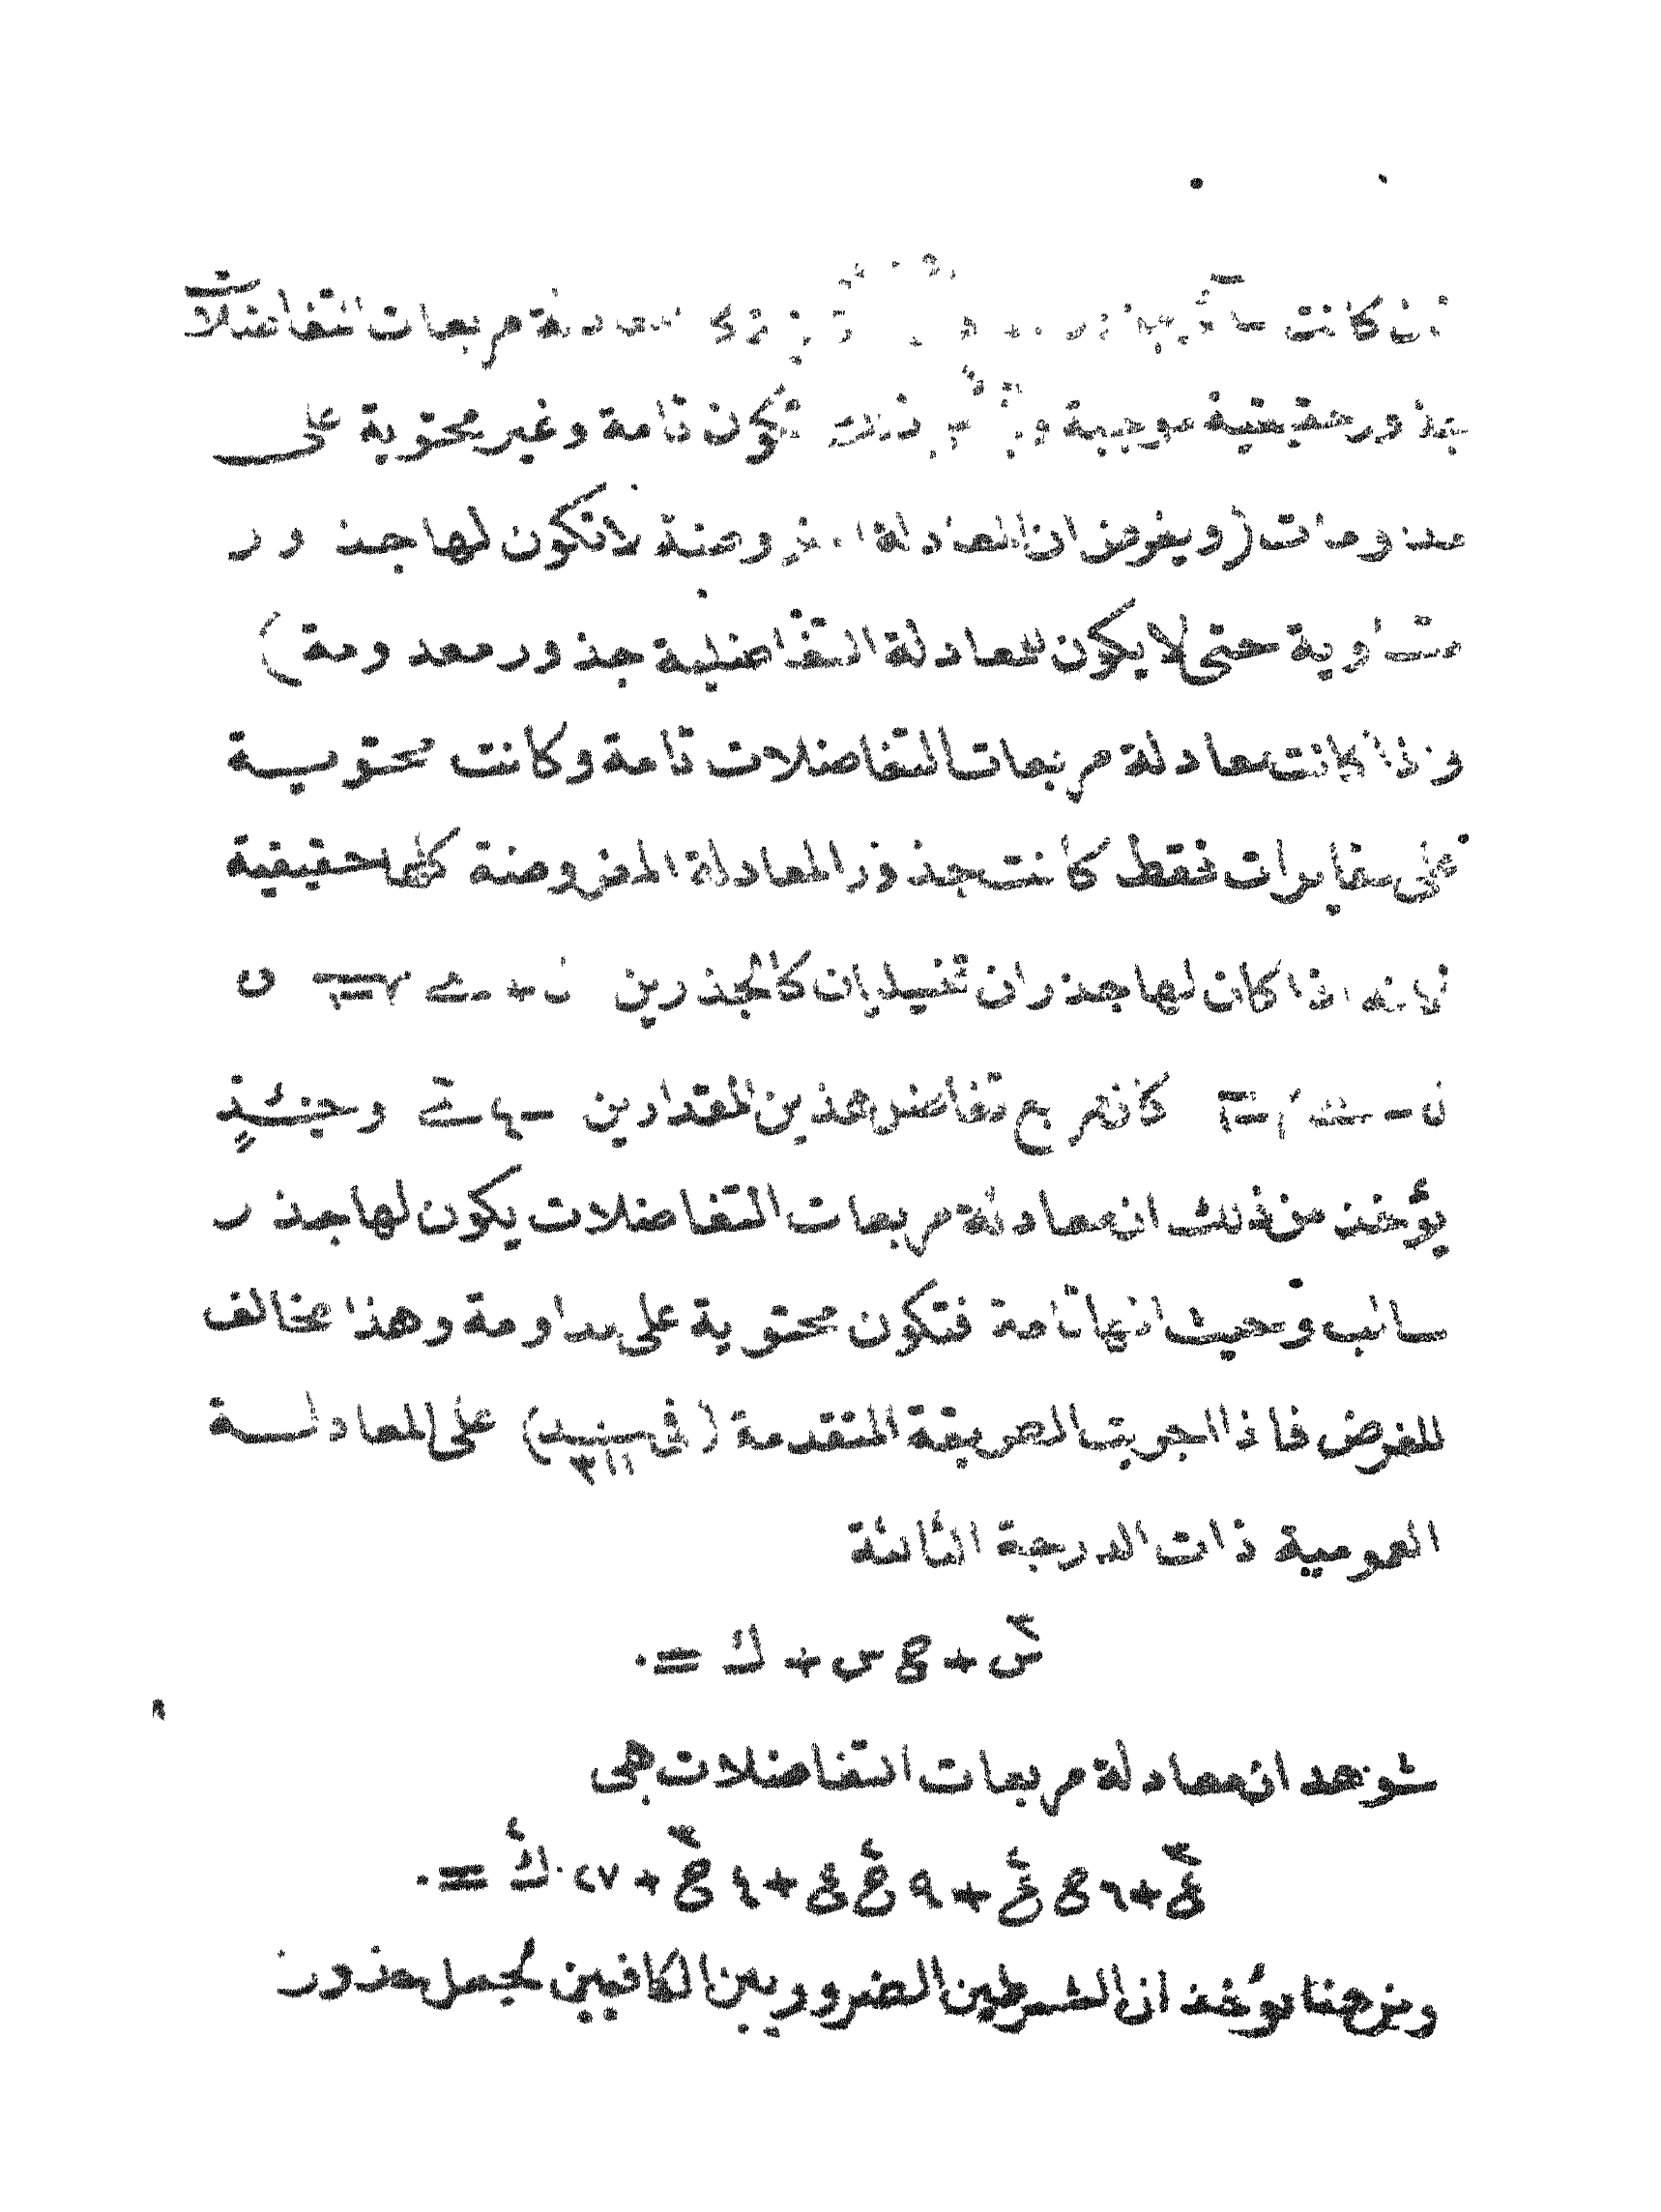 ان كانت معادلة مربعات التفاضلات
جذور حقيقية موجبة ذلك تكون تامة وغير محتوية على
مداومات (ويفرض ان المعادلة المفروضة لا تكون لها جذور
متساوية حتى لا يكون للمعادلة التفاضلية جذور معدومة)
واذا كانت معادلة مربعات التفاضلات تامة وكانت محتوية
على مغايرات فقط كانت جذور المعادلة المفروضة كلها حقيقية
لانه اذا كان لها جذران تخيليان كالجذرين
كان مربع تفاضل هذين المقدارين وحينئذٍ
يؤخذ من ذلك ان معادلة مربعات التفاضلات يكون لها جذر
سالب وحيث انها تامة فتكون محتوية على مداومة وهذا مخالف
للفرض فاذا اجريت الطريقة المتقدمة (فى بند ١١٣) على المعادلة
العمومية ذات الدرجة الثالثة
س٣ + ع س + ك = ٠
شوهد ان معادلة مربعات التفاضلات هى
غ٣ + ٦ ع غ٢ + ٩ ع٢ غ + ٤ ع٣ + ٢٧ ك٢ = ٠
ومن هنا يؤخذ ان الشرطين الضروريين الكافيين لجعل جذور